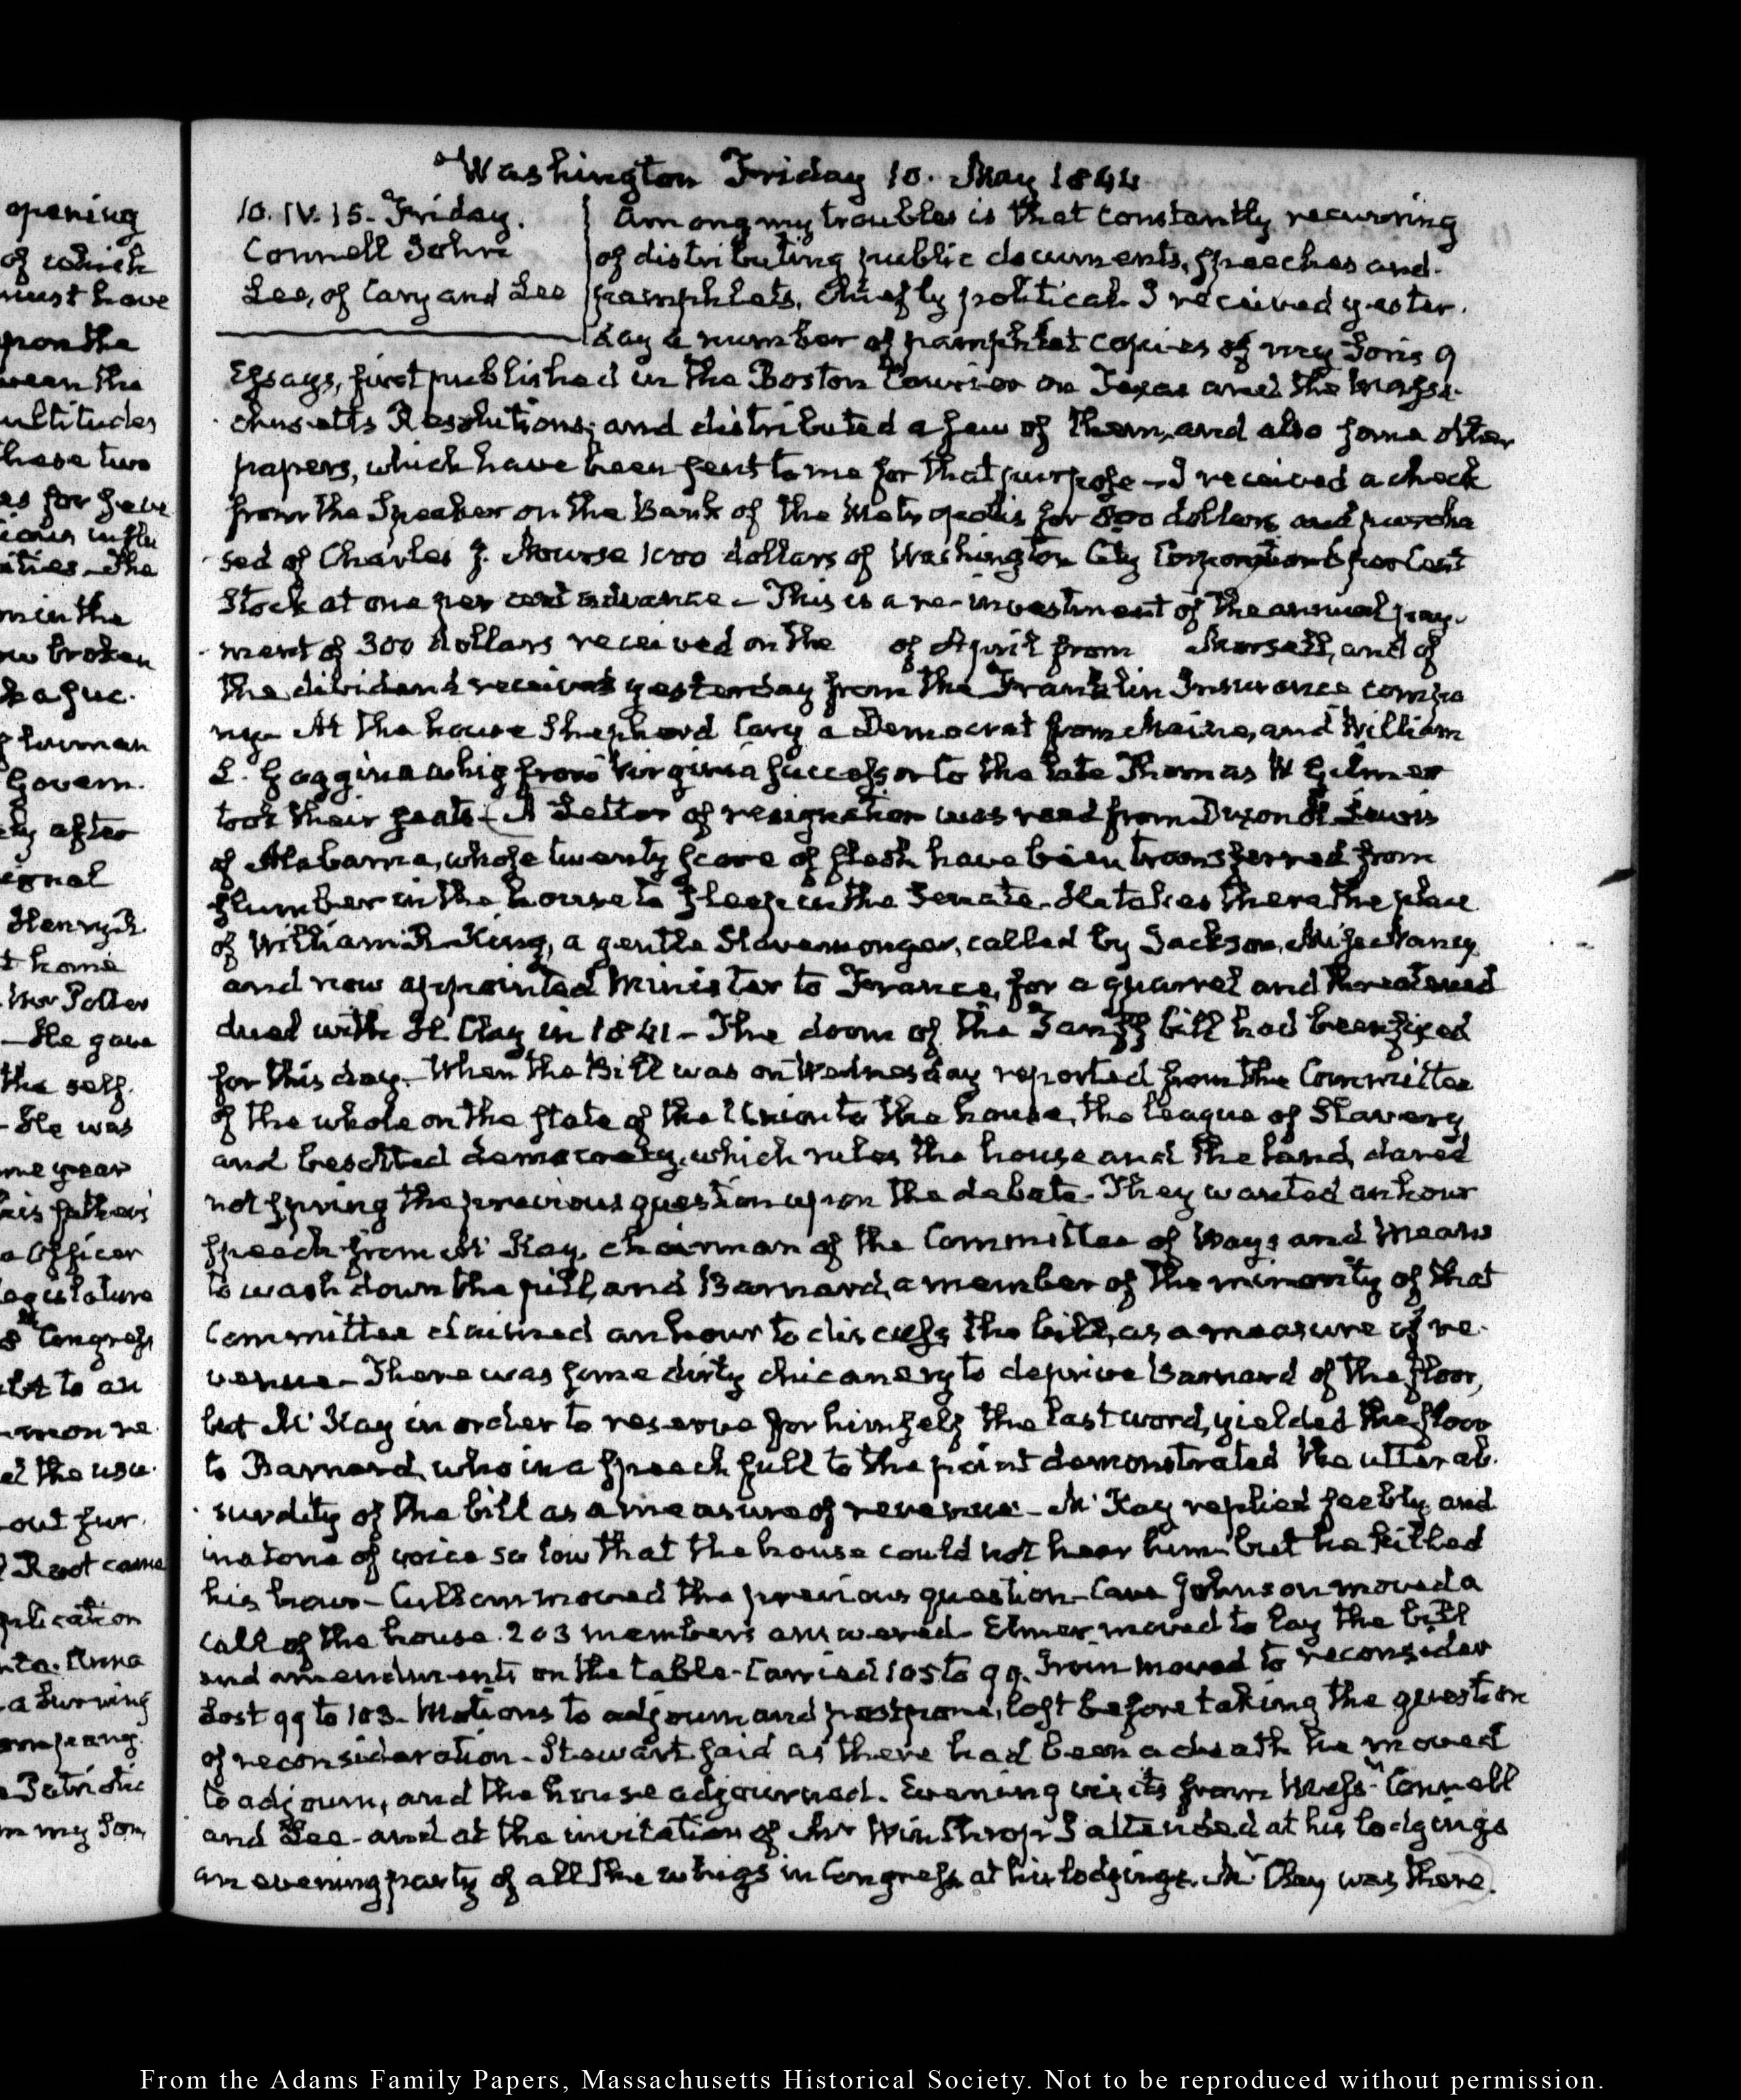 opening
of which
must have
upon the
ween the
ultitudes
these two
es for
ities - The
min the
w broken
human
Govern.
ty after
ignal
Henry R.
t home
Mr Potter
- He gave
the self.
- He was
me year
his father's
a Officer
egislature
8th Congress
to an
mon re
et the usu.
out fur.
Root came
plication
nta. Anna
a burning
Patriotic
my Son,
Washington Friday 10. May 1844
10. IV. 15. Friday.
Connell John
Lee, of Cary and Lee
Among my troubles is that constantly recurring
of distributing public documents, speeches and.
pamphlets, chiefly political. I received yester.
day a number of pamphlet copies of my Son's 9
Essays, first published in the Boston Courier on Texas and the Massa.
chusetts Resolutions; and distributed a few of them, and also some other
papers, which have been sent to me for that purpose - I received a check
from the Speaker on the Bank of the Metropolis for 800 dollars and purcha
sed of Charles J. Nourse 1000 dollars of Washington City Corporation per Cent
Stock at one per cent advance - This is a re-investment of the annual pay.
ment of 300 dollars received on the of April from and of
the dividend received yesterday from the Franklin Insurance compa
ny - At the house Shepherd Cary a Democrat from Maine, and William
L. Goggin a whig from Virginia successor to the late Thomas W Gilmer
took their seats - A Letter of resignation was read from Dixon H. Lewis
of Alabama, whose twenty score of flesh have been transferred from
slumber in the house to sleep in the Senate. He takes there the place
of William R. King, a gentle Slavemonger, called by Jackson, Miss Nancy
and now appointed Minister to France, for a quarrel and threatened
duel with H. Clay in 1841 - The doom of the Tariff bill had been fixed
for this day. When the Bill was on Wednesday reported from the Committee
of the whole on the state of the Union to the house, the league of Slavery
and besotted democracy, which rules the house and the land, dared
not spring the previous question upon the debate. They wanted an hour
speech from Mc Kay, chairman of the Committee of Ways and Means
to wash down the pill, and Barnard, a member of the minority of that
Committee claimed an hour to discuss the bill, as a measure of re.
venue - There was some dirty chicanery to deprive Barnard of the floor,
but Mc Kay in order to reserve for himself the last word, yielded the floor
to Barnard, who in a speech full to the point demonstrated the utter ab.
surdity of the bill as a measure of revenue - Mc Kay replied feebly, and
in a tone of voice so low that the house could not hear him but he killed
his hour - Cullom moved the previous question - Cave Johnson moved a
call of the house. 203 members answered. Elmer moved to lay the bill
and amendments on the table - Carried 105 to 99. Irvin moved to reconsider
Lost 99 to 103. Motions to adjourn and postpone, lost before taking the question
of reconsideration - Stewart said as there had been a death he moved
to adjourn, and the house adjourned. Evening visits from Messrs Connell
and Lee - and at the invitation of Mr Winthrop I attended at his lodgings
an evening party of all the whigs in Congress at his lodgings. Mr Clay was there.
From the Adams Family Papers, Massachusetts Historical Society. Not to be reproduced without permission.